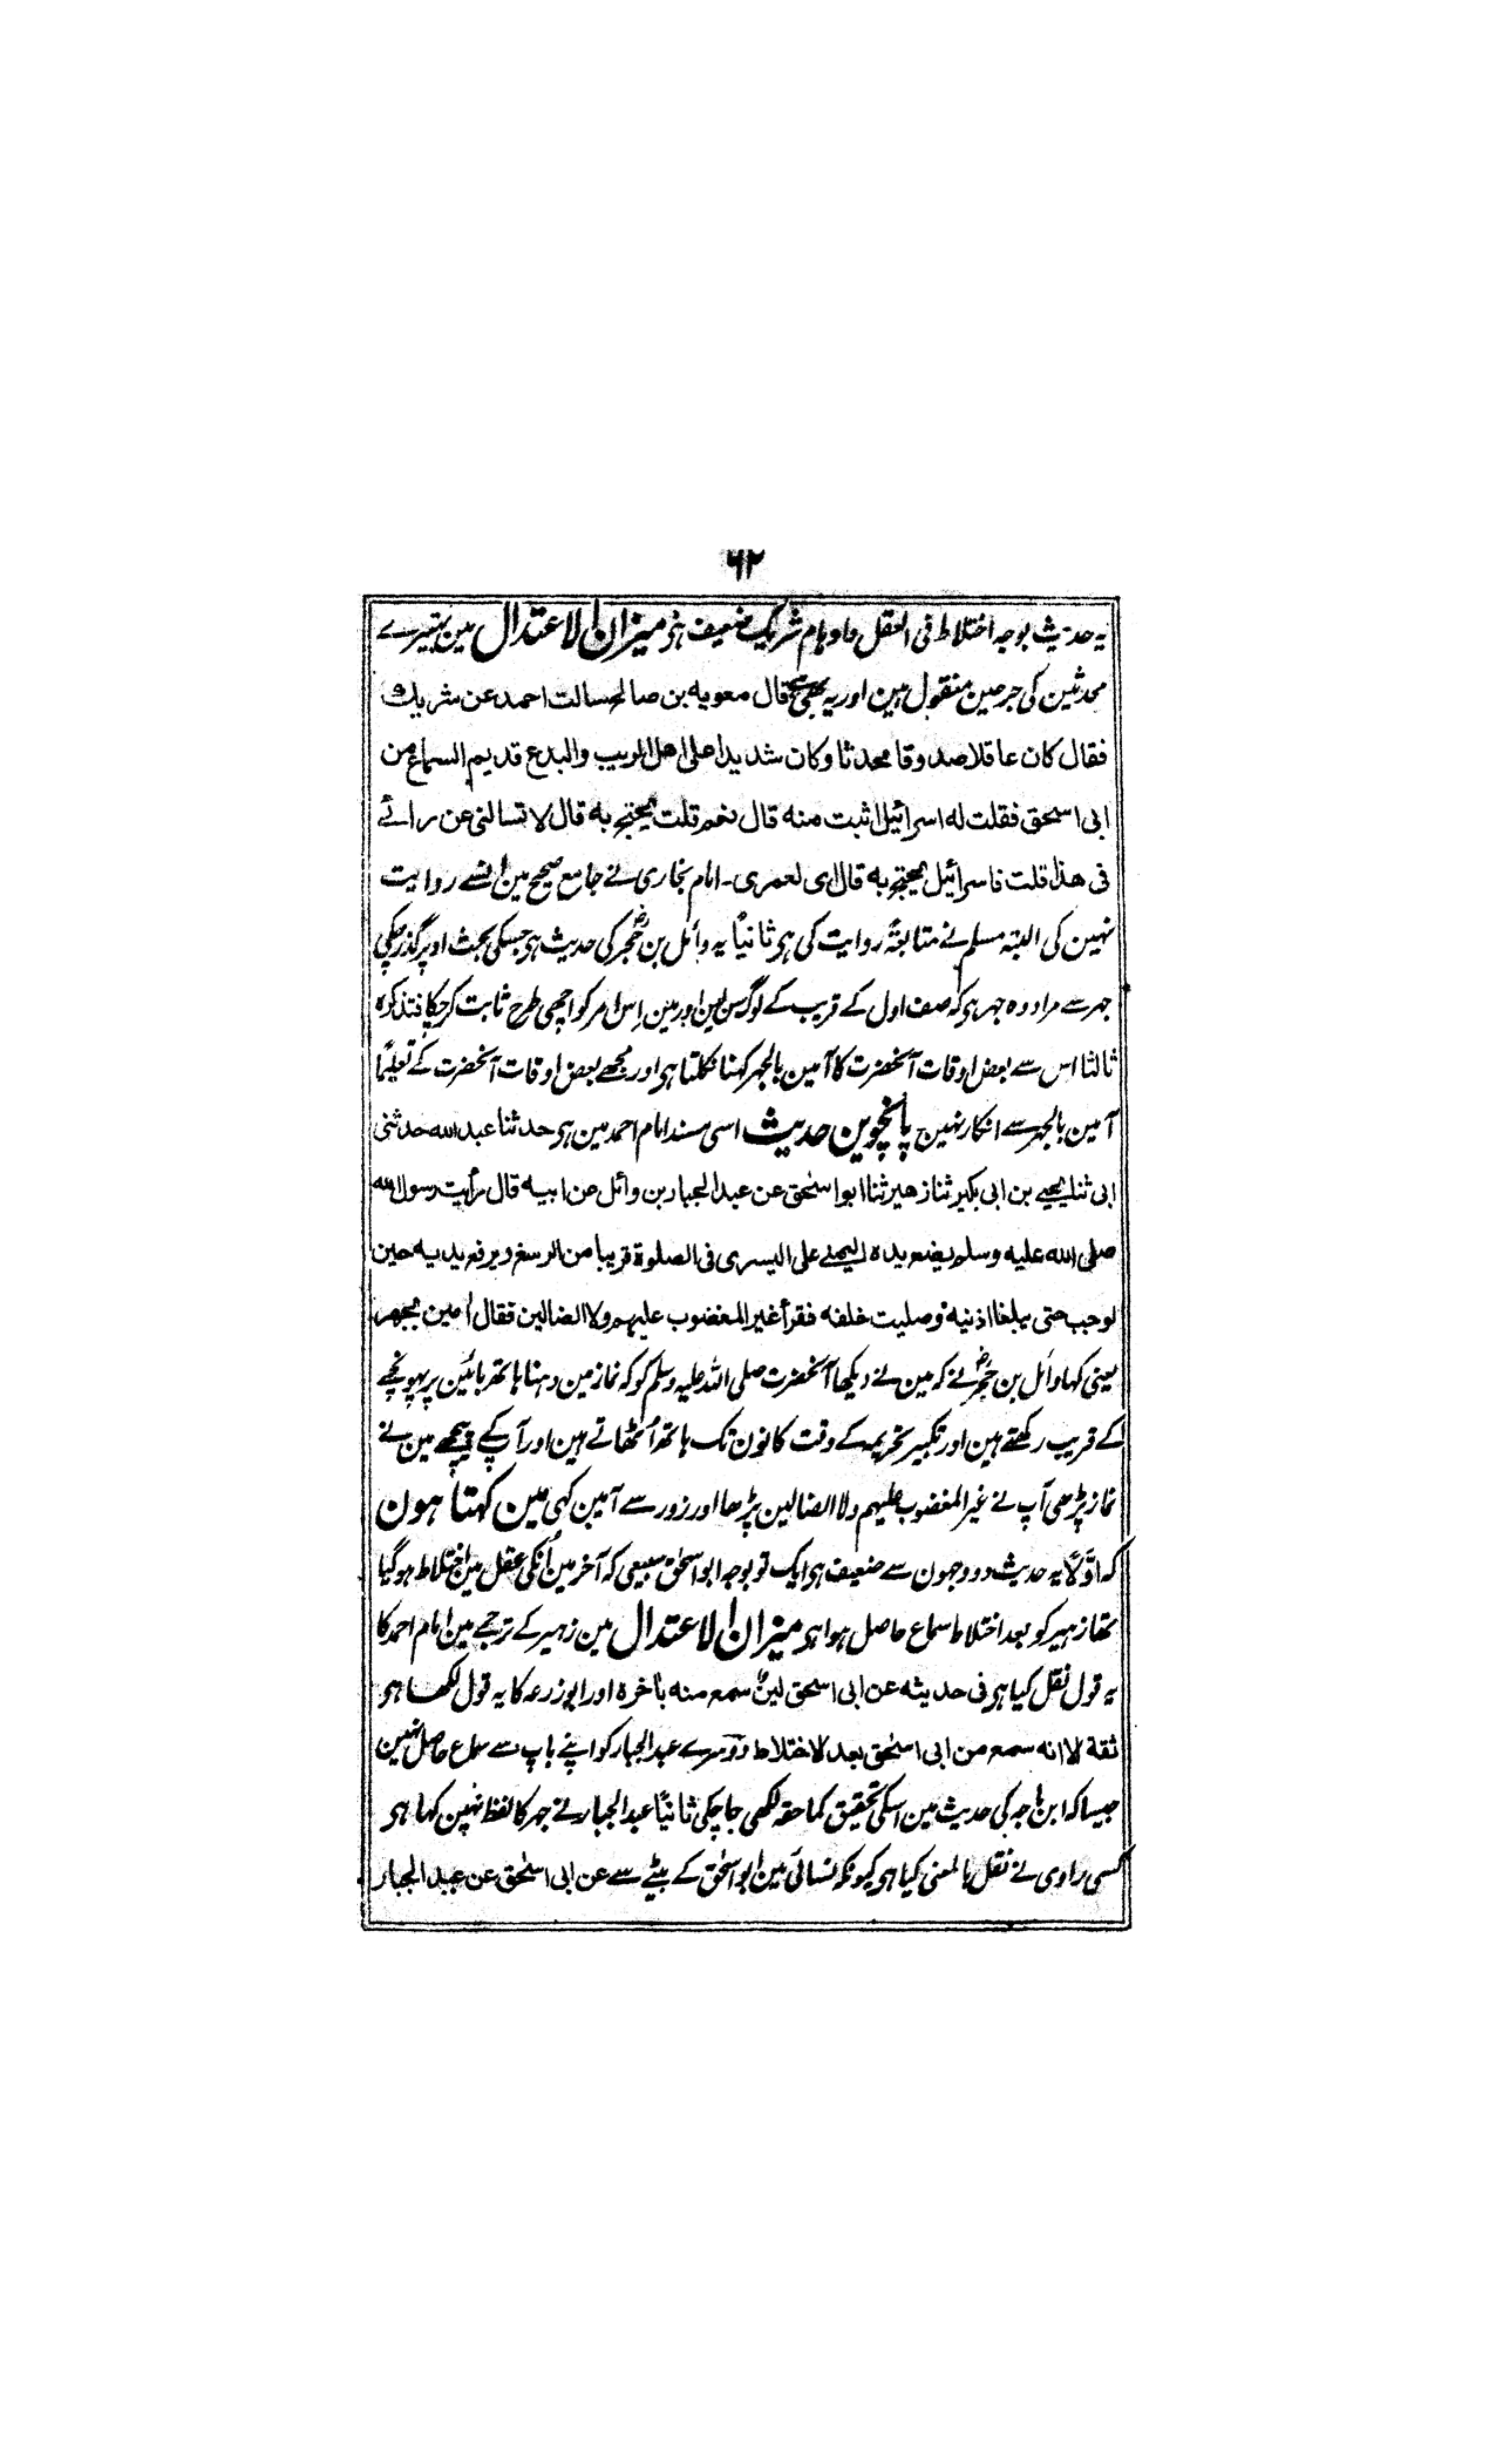 ۶۲
یہ حدیث بوجہ اختلاط فی العقل واوہام شریک ضعیف ہی میزان الاعتدال مین بہتیرے
محدثین کی جرحین منقول ہین اور یہ بھی ہے قال معویه بن صالح سالت احمد عن شریك
فقال کان عاقلا صدوقا محدثا وکان شدیدا علی اهل الریب والبدع قدیم السماع من
ابی اسحق فقلت له اسرائیل اثبت منه قال نعم قلت یحتج به قال لا تسالنی عن رائے
فی هذا قلت فاسرائیل یحتج به قال ای لعمری۔ امام بخاری نے جامع صحیح مین انسے روایت
نہین کی البتہ مسلم نے متابعۃً روایت کی ہی ثانیاً یہ وائل بن حُجرؓ کی حدیث ہی جسکی بحث اوپر گذر چکی
جہر سے مراد وہ جہر ہی کہ صف اول کے قریب کے لوگ سن لین اور مین اِس امر کو اچھی طرح ثابت کر چکا فتذکرہ
ثالثا اس سے بعض اوقات آنحضرت کا آمین بالجہر کہنا نکلتا ہی اور مجھے بعض اوقات آنحضرت کے تعلیمًا
آمین بالجہر سے انکار نہین پانچوین حدیث اسی مسند امام احمد مین ہی حدثنا عبدالله حدثنی
ابی ثنا یحیے بن ابی بکیر ثنا زهیر ثنا ابو اسحٰق عن عبدالجبار بن وائل عن ابیه قال رأیت رسول الله
صلی الله علیه وسلم یضع یده الیمنے علی الیسری فی الصلوة قریبا من الرسغ ویرفع یدیه حین
لوجب حتی یبلغا اذنیه وصلیت خلفه فقرأ غیر المغضوب علیهم ولا الضالین فقال اٰمین یجهر
یعنی کہا وائل بن حُجرؓ نے کہ مین نے دیکھا آنحضرت صلی اللہ علیہ وسلم کو کہ نماز مین دہنا ہاتھ بائین پر پہونچے
کے قریب رکھتے ہین اور تکبیر تحریمہ کے وقت کانون تک ہاتھ اُٹھاتے ہین اور آپکے پیچھے مین نے
نماز پڑھی آپ نے غیر المغضوب علیہم ولا الضالین پڑھا اور زور سے آمین کہی مین کہتا ہون
کہ اوّلًا یہ حدیث دو وجہون سے ضعیف ہی ایک تو بوجہ ابو اسحٰق سبیعی کہ آخر مین اُنکی عقل مین اختلاط ہو گیا
تھا زہیر کو بعد اختلاط سماع حاصل ہوا ہی میزان الاعتدال مین زہیر کے ترجمے مین امام احمد کا
یہ قول نقل کیا ہی فی حدیثه عن ابی اسحق لینٌ سمع منه باخرة اور ابو زرعہ کا یہ قول لکھا ہی
ثقة لا انه سمع من ابی اسحٰق بعد لاختلاط دوسرے عبد الجبار کو اپنے باپ سے سماع حاصل نہین
جیسا کہ ابن ماجہ کی حدیث مین اسکی تحقیق کما حقہ لکھی جا چکی ثانیًا عبد الجبار نے جہر کا لفظ نہین کہا ہی
کسی راوی نے نقل بالمعنی کیا ہی کیونکہ نسائی مین ابو اسحٰق کے بیٹے سے عن ابی اسحٰق عن عبد الجبار